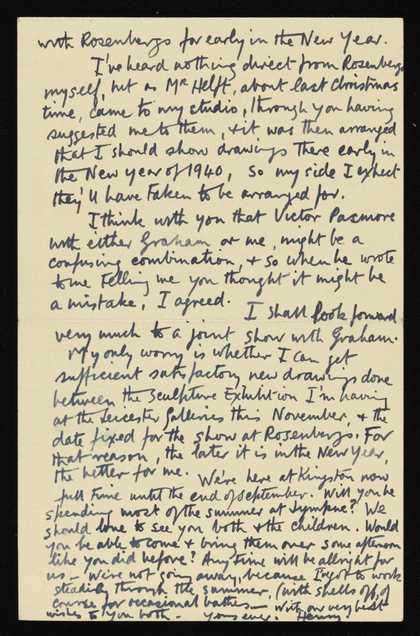 with Rosenbergs for early in the New Year.
I've heard nothing direct from Rosenbergs
myself, but as Mr Helft, about last Christmas
time, came to my studio, through you having
suggested me to them, & it was then arranged
that I should show drawings there early in
the New year of 1940, so my side I expect
they'll have taken to be arranged for.
I think with you that Victor Pasmore
with either Graham or me, might be a
confusing combination, & so when he wrote
to me telling me you thought it might be
a mistake, I agreed.
I shall look forward
very much to a joint show with Graham.
My only worry is whether I can get
sufficient satisfactory new drawings done
between the Sculpture Exhibition I'm having
at the Leicester Galleries this November, & the
date fixed for the show at Rosenbergs. For
that reason, the later it is in the New Year,
the better for me.
We're here at Kingston now
full time until the end of September. Will you be
spending most of the summer at Lympne? We
should love to see you both & the children. Would
you be able to come & bring them over some afternoon
like you did before? Any time will be allright for
us – We're not going away, because I've got to work
steadily through the summer, (with spells off, of
course for occasional bathes – With our very best
wishes to you both – Yours ever. Henry.